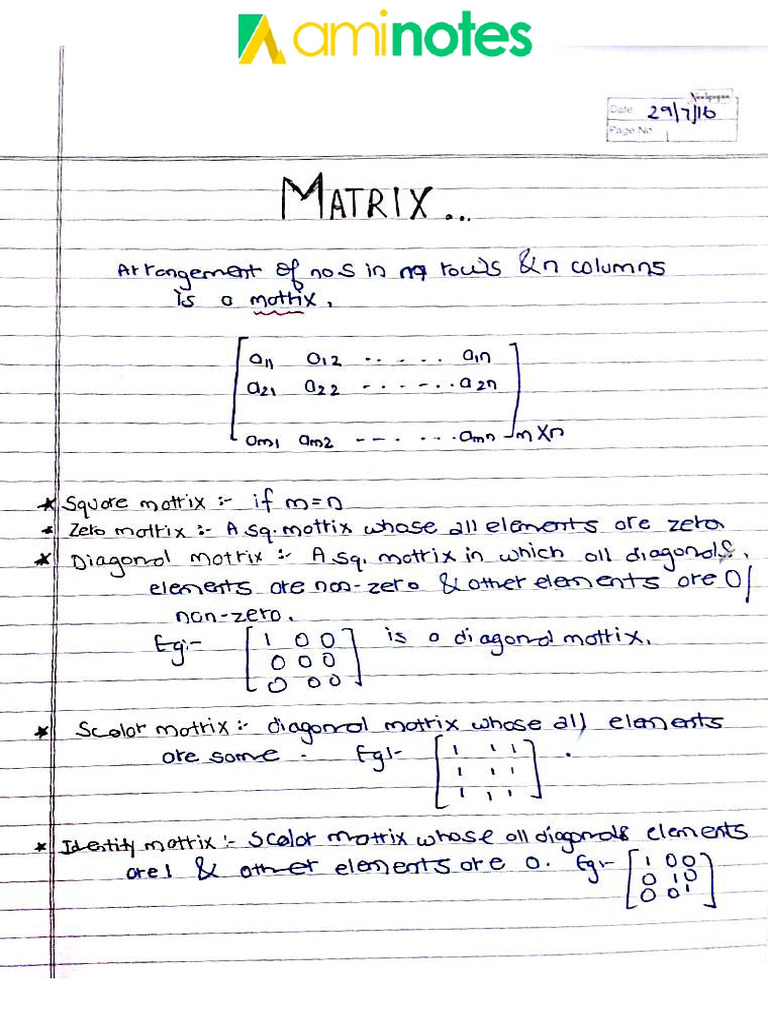 aminotes
Neelgagan
Date 29/7/16
Page No. 1
MATRIX...
Arrangement of nos in m rows & n columns
is a matrix.
a11 a12 ...... a1n
a21 a22 ------ a2n
am1 am2 ------ amn m×n
* Square matrix :- if m=n
* Zero matrix :- A sq. matrix whose all elements are zero.
* Diagonal matrix :- A sq. matrix in which all diagonals.
elements are non-zero & other elements are 0/
non-zero.
Eg:- [1 0 0 is a diagonal matrix.
0 0 0
0 0 0]
* Scalar matrix :- diagonal matrix whose all elements
are same. Eg:- [1 1 1
1 1 1
1 1 1]
* Identity matrix :- Scalar matrix whose all diagonals elements
are 1 & other elements are 0. Eg:- [1 0 0
0 1 0
0 0 1]